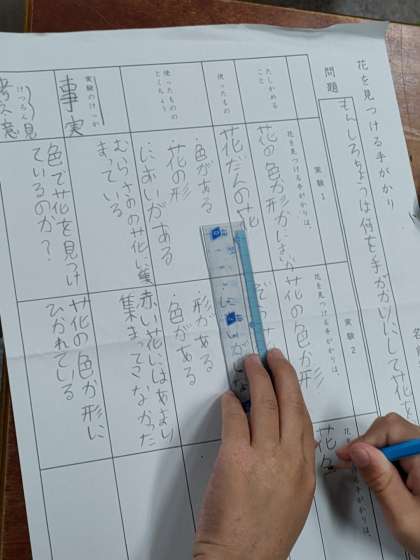 花を見つける手がかり
問題
もんしろちょうは何を手がかりにして花を
実験1
実験2
たしかめること
花を見つける手がかりは、
花の色か形かにおいか
花を見つける手がかりは、
花の色か形
花を
手がかりは、
花色
使ったもの
花だんの花
使ったもののとくちょう
・色がある
・花の形
・においがある
・形がある
色がある
実験のけっか
事実
むらさきの花に集まっている
赤い花にはあまり集まってこなかった
けつろん
意見
色で花を見つけているのか?
花の色か形にひかれている